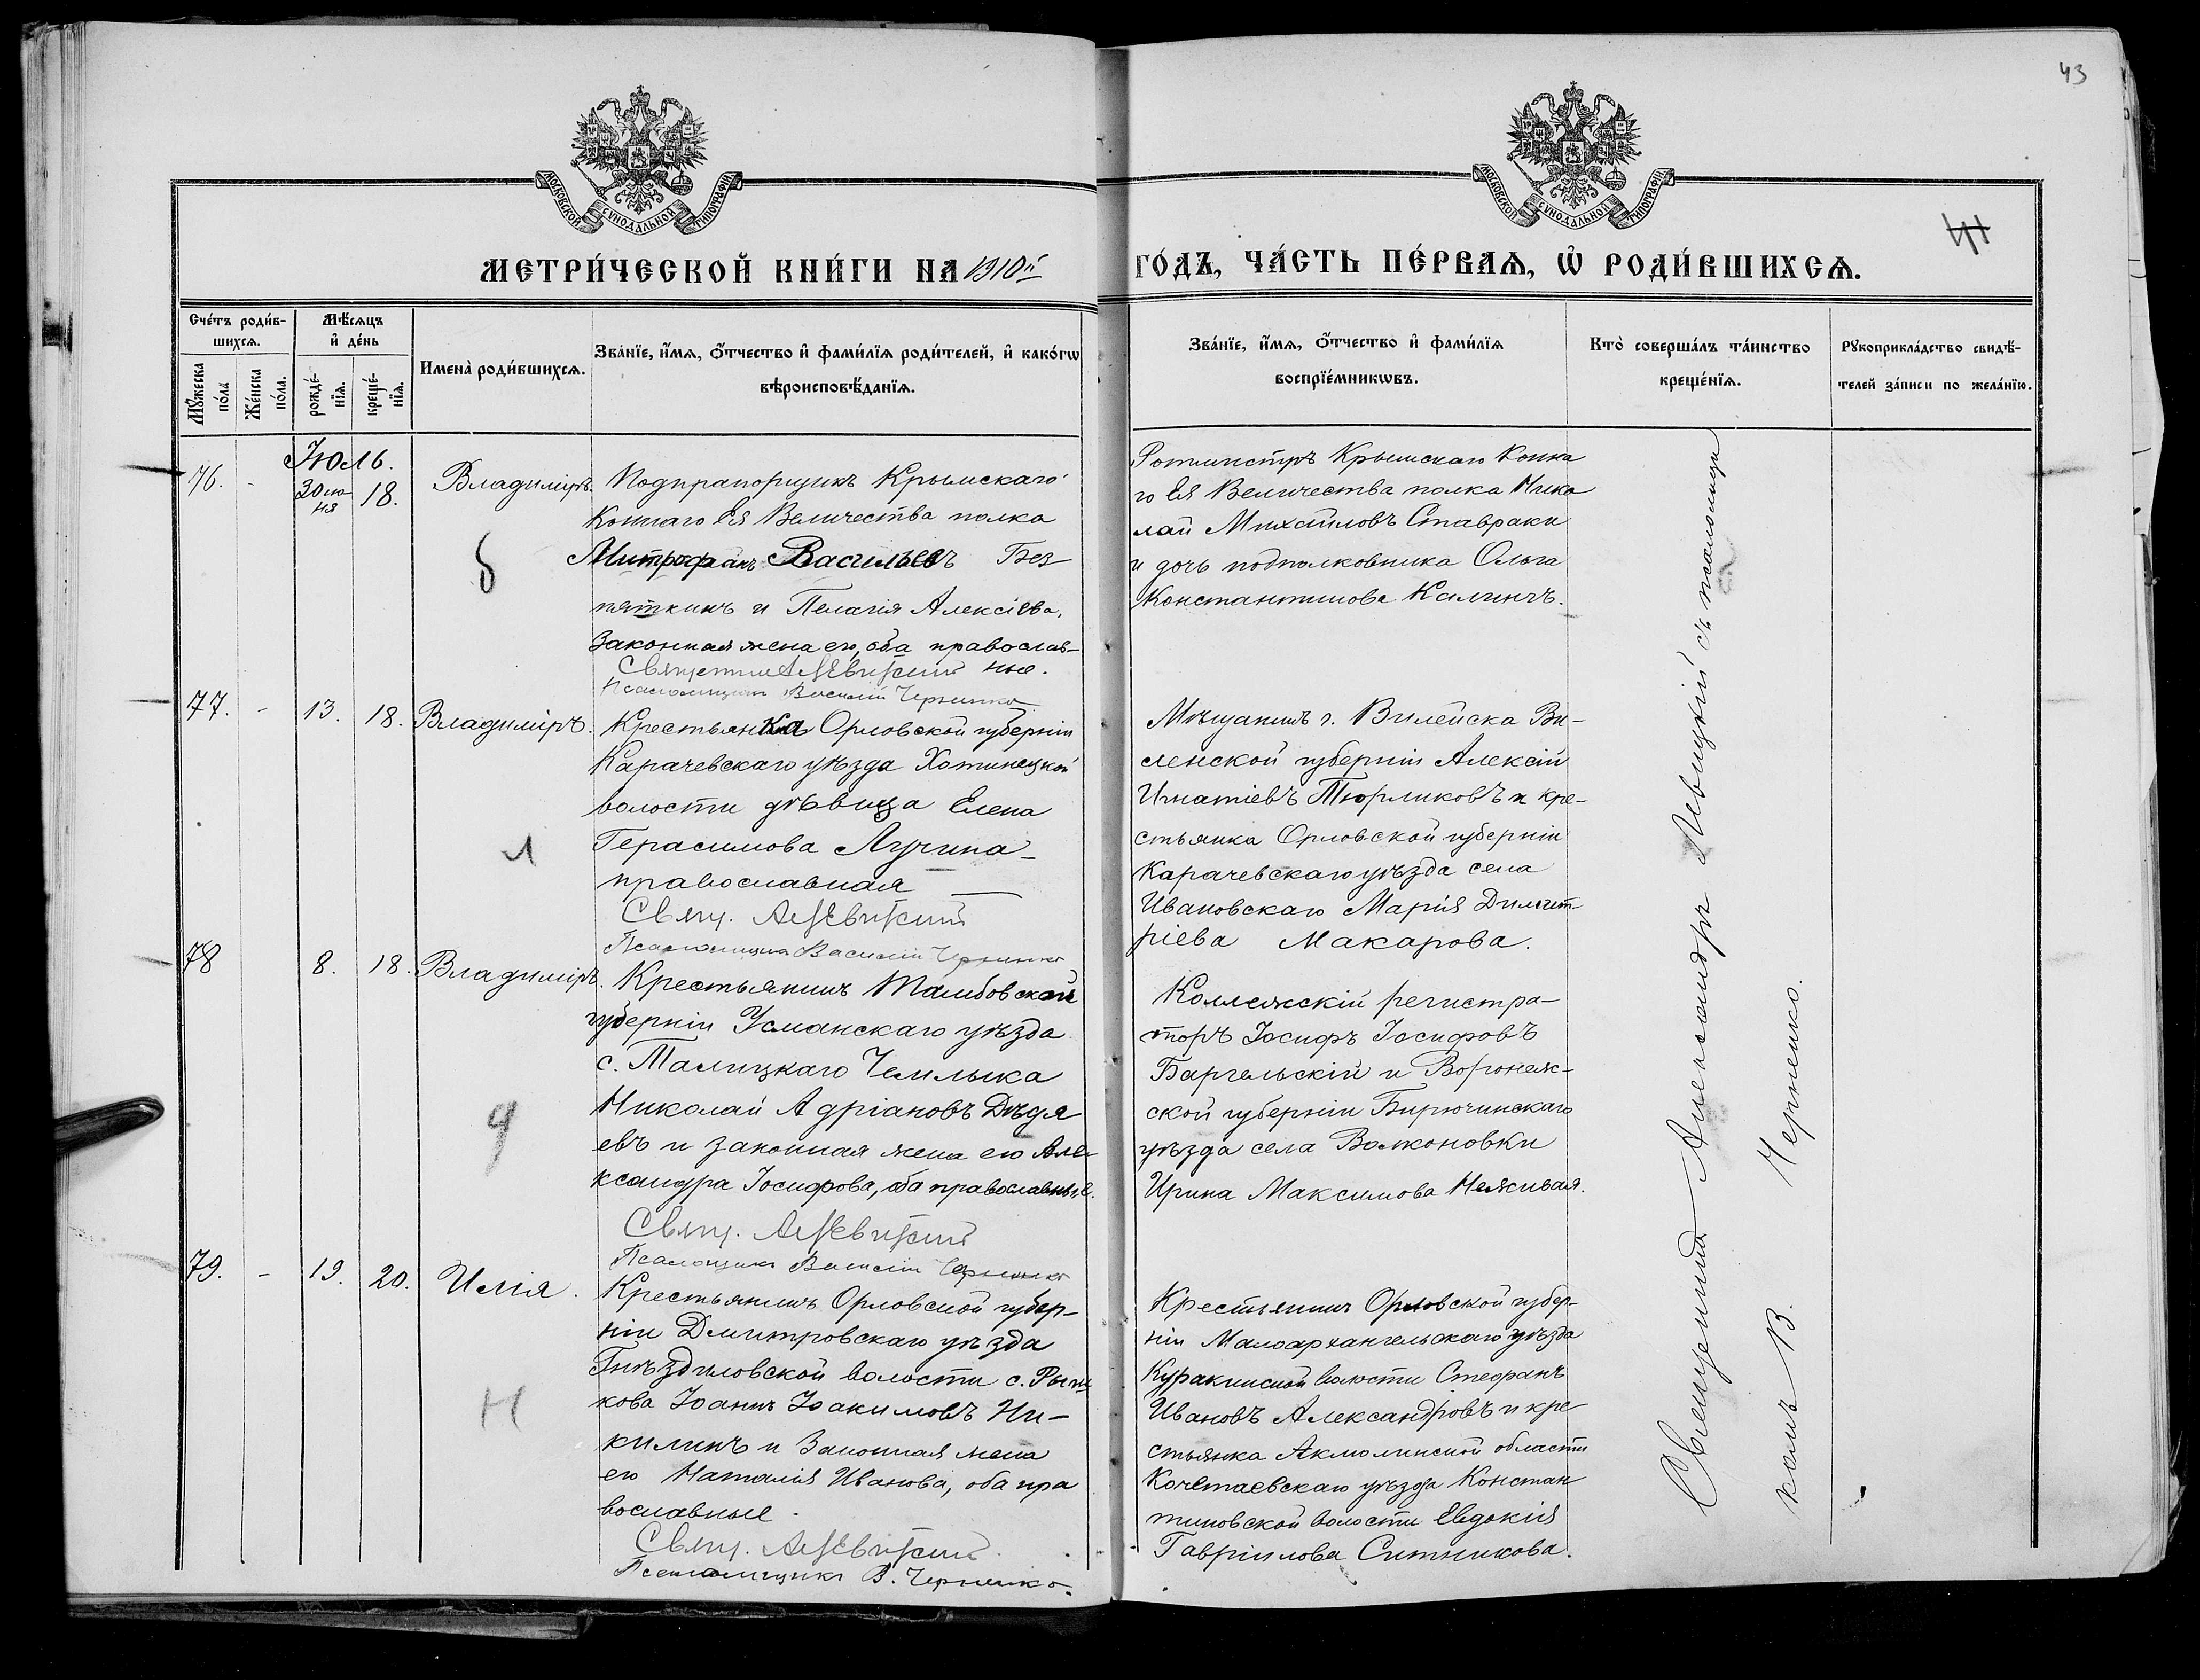 43
МОСКОВСКОЙ СѴНОДАЛЬНОЙ ТИПОГРАФІИ
МОСКОВСКОЙ СѴНОДАЛЬНОЙ ТИПОГРАФІИ
41
МЕТРИ́ЧЕСКОЙ КНИ́ГИ НА 1910й
ГО́ДЪ, ЧА́СТЬ ПЕ́РВАѦ, Ѽ РОДИ́ВШИХСѦ.
Сче́тъ роди́в-
шихсѧ.
Мꙋ́жеска по́ла
Же́нска по́ла.
Мѣ́сѧцъ
и҆ де́нь
рожде́нїѧ.
креще́нїѧ.
Имена̀ роди́вшихсѧ.
Зва́нїе, и҆́мѧ, ѻ҆́тчество и҆ фами́лїѧ роди́телей, и҆ како́гѡ
вѣроисповѣ́данїѧ.
Зва́нїе, и҆́мѧ, ѻ҆́тчество и҆ фами́лїѧ
воспрїе́мникѡвъ.
Кто̀ соверша́лъ та́инство
креще́нїѧ.
Рꙋкоприкла́дство свидѣ́-
телей за́писи по жела́нїю.
Июль.
76. - 30 июня 18. Владиміръ.
Подпрапорщикъ Крымскаго
Коннаго Ея Величества полка
Митрофанъ Васильевъ Без
пяткинъ и Пелагія Алексіева,
законная жена его, оба православ-
ные.
Священник А Левицкий
Псаломщикъ Василій Черненко
б
Ротмистръ Крымскаго Конна
го Ея Величества полка Нико
лай Михаиловъ Ставраки
и дочь подполковника Ольга
Константинова Калинчъ.
77. - 13. 18. Владиміръ.
Крестьянка Орловской губерніи
Карачевскаго уѣзда Хотинецкой
волости дѣвица Елена
Герасимова Лучина -
православная
Свящ. А Левицкий
Псаломщикъ Василій Черненко
л
Мѣщанинъ г. Вилейска Ви-
ленской губерніи Алексій
Игнатіевъ Тюрликовъ и кре-
стьянка Орловской губерніи
Карачевскаго уѣзда села
Ивановскаго Марія Димит-
ріева Макарова.
78 8. 18. Владиміръ.
Крестьянинъ Тамбовской
губерніи Усманскаго уѣзда
с. Талицкаго Чемлыка
Николай Адріановъ Дѣдя
евъ и законная жена его Але-
ксандра Іосифова, оба православные.
Свящ. А Левицкий
Псаломщикъ Василій Черненко
д
Коллежскій регистра-
торъ Іосифъ Іосифовъ
Баргельскій и Воронеж-
ской губерніи Бирючинскаго
уѣзда села Волконовки
Ирина Максимова Неживая.
79. - 19. 20. Илія.
Крестьянинъ Орловской губер-
ніи Дмитровскаго уѣзда
Гнѣздиловской волости с.
кова Іоаннъ Іоакимовъ Ни-
килинъ и законная жена
его Наталія Иванова, оба пра
вославные.
Свящ. А Левицкий
Псаломщикъ В. Черненко.
Н
Крестьянинъ Орловской губер-
ніи Малоархангельскаго уѣзда
Куракинской волости Стефанъ
Ивановъ Александровъ и кре-
стьянка Акмолинской области
Кочетаевскаго уѣзда Констан
тиновской волости Евдокія
Гавріилова Ситникова.
Священникъ Александръ Левицкій съ псаломщи
комъ В. Черненко.